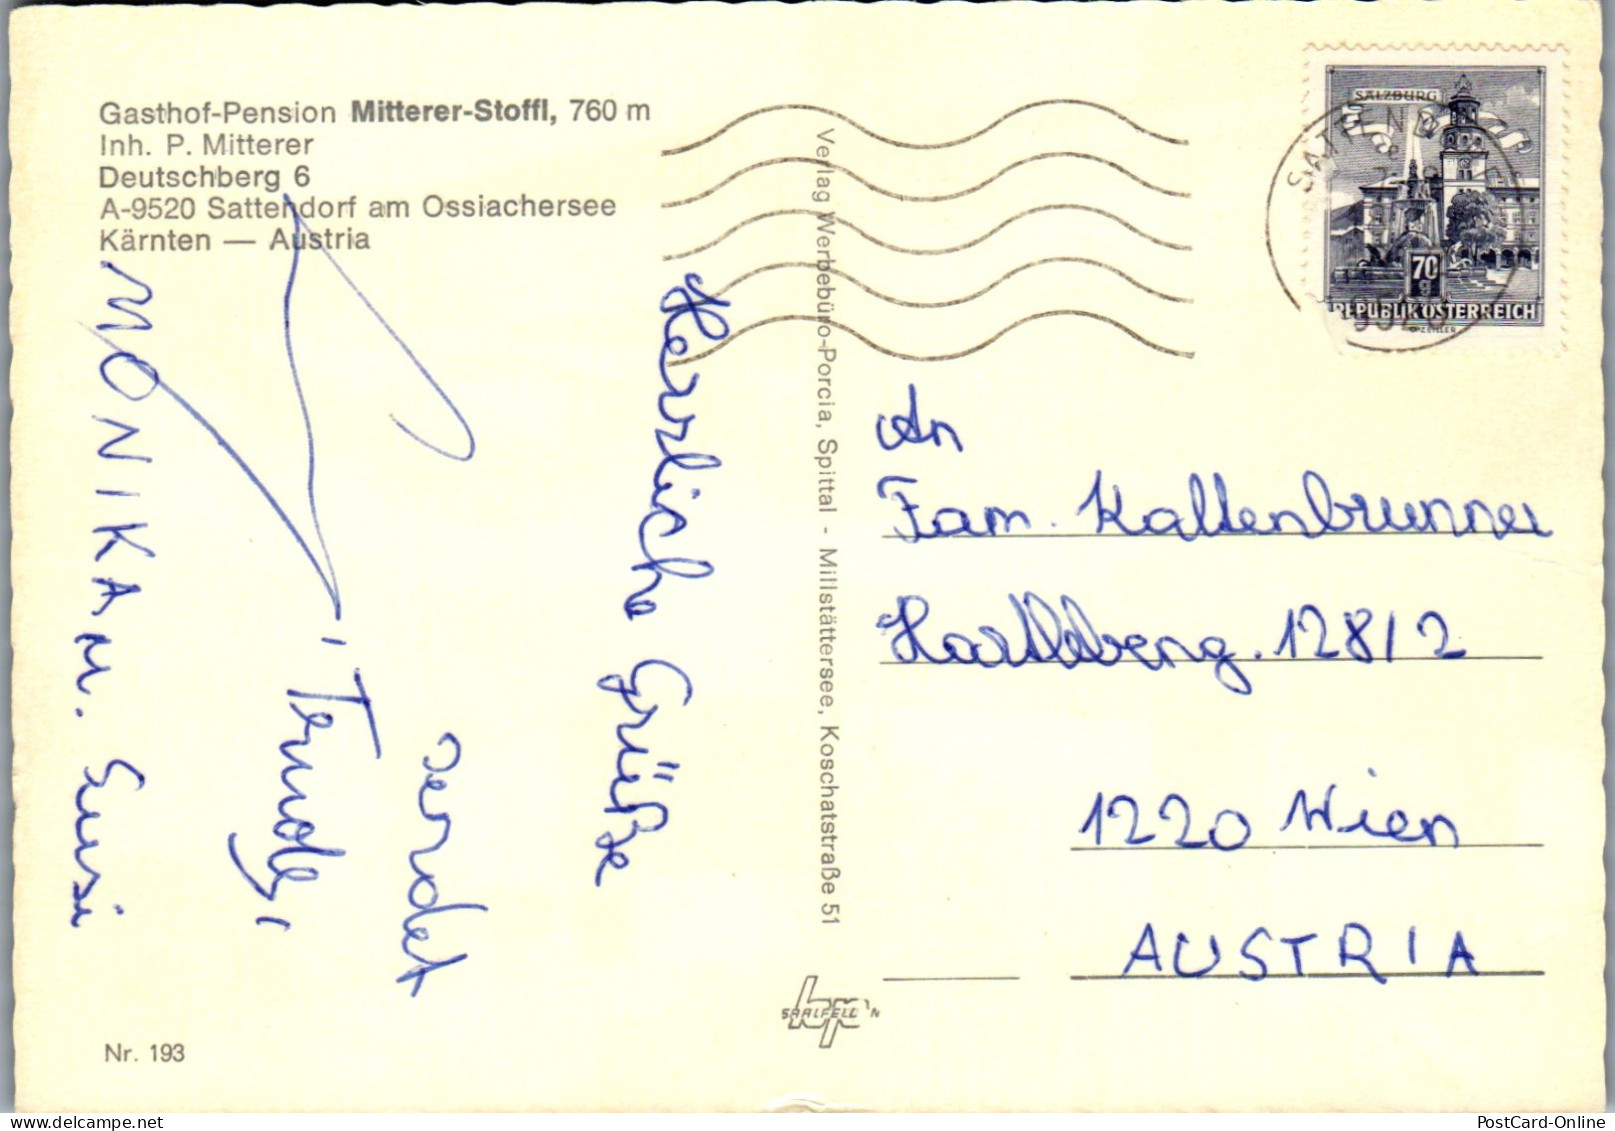 Gasthof-Pension Mitterer-Stoffl, 760 m
Inh. P. Mitterer
Deutschberg 6
A-9520 Sattendorf am Ossiachersee
Kärnten — Austria
Herzliche Grüße
sendet
Trudl,
MONIKA u. Susi
Nr. 193
Verlag Werbebüro-Porcia, Spittal - Millstättersee, Koschatstraße 51
SAALFELDEN
SALZBURG
70
g
REPUBLIK ÖSTERREICH
O. ZEILLER
SATTENDORF
9520
An
Fam. Kaltenbrunner
1220 Wien
AUSTRIA
PostCard-Online